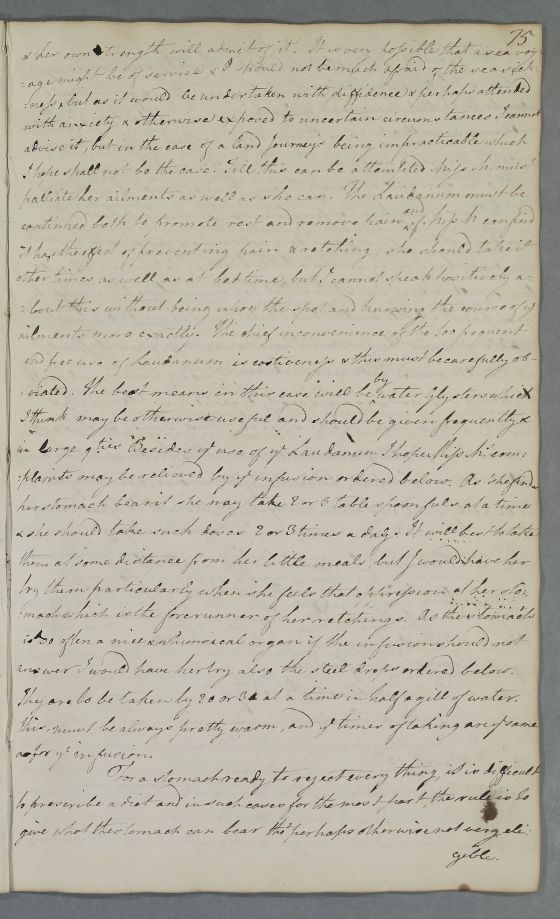 75
& her own strength will admit of it. It is very possible that a sea voy-
=age might be of service & I should not be much afraid of the sea sick-
:ness, but as it would be undertaken with diffidence & perhaps attended
with anxiety & otherwise exposed to uncertain circumstances I cannot
advise it, but in the case of a land Journey's being impracticable which
I hope shall not be the case. Till this can be attempted Miss H. must
palliate her ailments as well as she can. The Laudanum must be
continued both to promote rest and remove pain and if Miss H. can find
it has the effect of preventing pain & retching, she should take it
other times as well as at bed time, but I cannot speak positively a-
=bout this without being upon the spot and knowing the course of yr
ailments more exactly. The chief inconvenience of the too frequent
and free use of Laudanum is costiveness & this must be carefully ob-
:viated. The best means in this case will be by water Glysters which
I think may be otherwise useful and should be given frequently &
in large qties Besides ye use of ye Laudanum I hope Miss H's com:
:plaints may be relieved by ye infusion ordered below. As she finds
her stomach bears it she may take 2 or 3 table spoonfuls at a time
& she should take such doses 2 or 3 times a day. It will best to take
them at some distance from her little meals but I would have her
try them particularly when she feels that oppression at her sto:
:mach which is the forerunner of her retchings. As the stomach
is so often a nice & whimsical organ if the infusion should not
answer I would have her try also the steel drops ordered below.
They are to be taken by 20 or 30 at a time in half a gill of water.
This must be always pretty warm, and ye times of taking are ye same
as for ye infusion.
For a stomach ready to reject every thing, it is difficult
to prescribe a diet and in such cases for the most part the rule is to
give what the stomach can bear tho' perhaps otherwise not very eli:
gible.